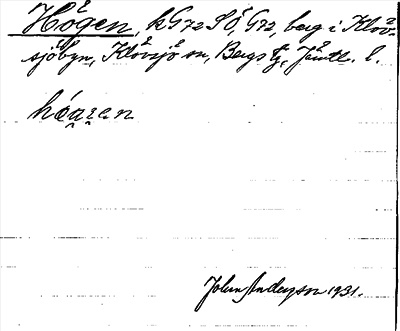 Högen, kG72SÖ, G72, berg i Klöv-
sjöbyn, Klövsjö sn, Bergs tg, Jämtl. l.
John Anderson 1931.